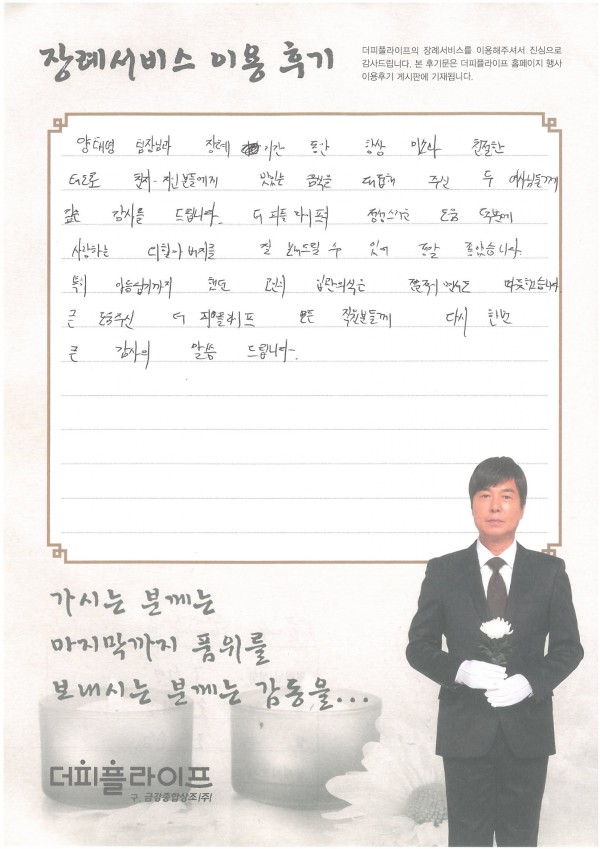 장례서비스 이용 후기
더피플라이프의 장례서비스를 이용해주셔서 진심으로
감사드립니다. 본 후기문은 더피플라이프 홈페이지 행사
이용후기 게시판에 기재됩니다.
양태영 팀장님과 장례 기간 동안 항상 미소와 친절한
태도로 친지·지인분들에게 맛있는 음식을 대접해 주신 두 여사님들께
깊은 감사를 드립니다. 더 피플 라이프의 정성스러운 도움 덕분에
사랑하는 할아버지를 잘 보내드릴 수 있어 정말 좋았습니다.
특히 입관의식은 따뜻했습니다.
큰 도움주신 더 피플라이프 모든 직원분들께 다시 한번
큰 감사의 말씀 드립니다.
가시는 분께는
마지막까지 품위를
보내시는 분께는 감동을...
더피플라이프
구. 금강종합상조(주)